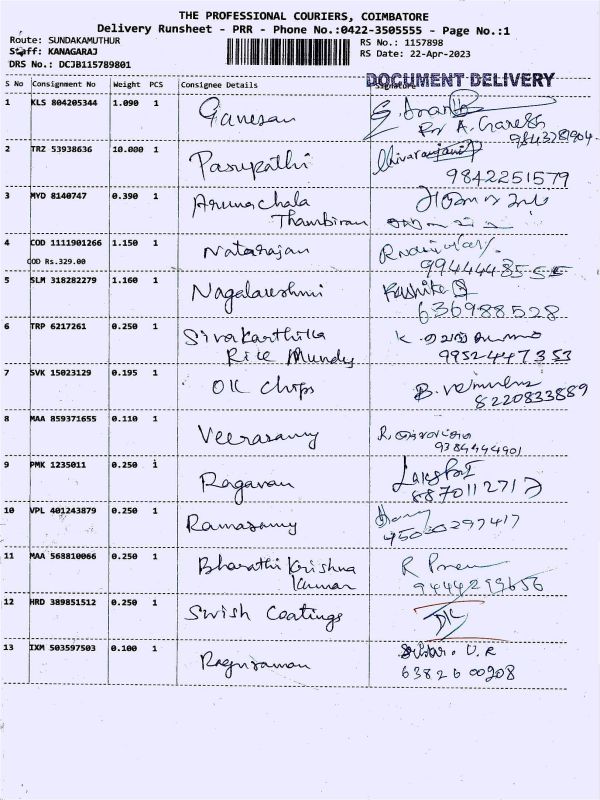 THE PROFESSIONAL COURIERS, COIMBATORE
Delivery Runsheet - PRR - Phone No.:0422-3505555 - Page No.:1
Route: SUNDAKAMUTHUR
Staff: KANAGARAJ
DRS No.: DCJB115789801
RS No.: 1157898
RS Date: 22-Apr-2023
DOCUMENT DELIVERY
S No Consignment No Weight PCS Consignee Details Signature
1 KLS 804205344 1.090 1 Ganesan
2 TRZ 53938636 10.000 1 Pasupathi
9842251579
3 MYD 8140747 0.390 1 Arunachala
Thambiran
4 COD 1111901266 1.150 1 Natarajan
COD Rs.329.00
5 SLM 318282279 1.160 1 Nagalakshmi
636988528
6 TRP 6217261 0.250 1 Sivakarthika
Rice Mundy 9952447353
7 SVK 15023129 0.195 1 OK Chips
8220833889
8 MAA 859371655 0.110 1 Veerasamy
9384444901
9 PMK 1235011 0.250 1 Ragavan
8870112717
10 VPL 401243879 0.250 1 Ramasamy
11 MAA 568810066 0.250 1 Bharathi Krishna
Kumar 9444299656
12 HRD 389851512 0.250 1 Swish Coatings
13 IXM 503597503 0.100 1 Raguraman
6382600208